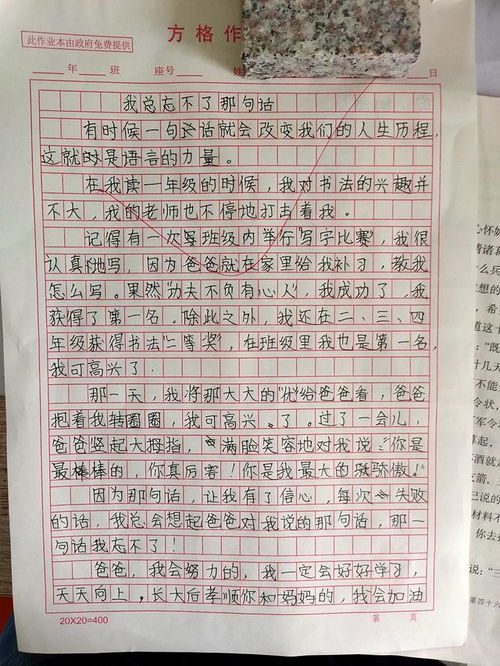 此作业本由政府免费提供
方格作
年 班 座号 姓 日
我总忘不了那句话
有时候一句话就会改变我们的人生历程,
这就是语言的力量。
在我读一年级的时候,我对书法的兴趣并
不大,我的老师也不停地打击着我。
记得有一次班级内举行"写字比赛",我很
认真地写,因为爸爸就在家里给我补习,教我
怎么写。果然"功夫不负有心人",我成功了,我
获得了第一名。除此之外,我还在二、三、四
年级获得书法"二等奖",在班级里我也是第一名,
我可高兴了.
那一天,我将那大大的"优"给爸爸看,爸爸
抱着我转圈圈,我可高兴。了。过了一会儿,
爸爸竖起大拇指,满脸笑容地对我说:"你是
最棒棒的,你真厉害!你是我最大的骄傲!"
因为那句话,让我有了信心,每次失败
的话,我总会想起爸爸对我说的那句话,那一
句话我忘不了!
爸爸,我会努力的,我一定会好好学习,
天天向上,长大后孝顺你和妈妈的,我会加油
20X20=400
第 页
心怀如
什么兵
想的
希
道这
:"既
十几天
不能
令状,
军令
算起,
酒就
支箭,
已说的
材料不
你去
说:"三
第四十六